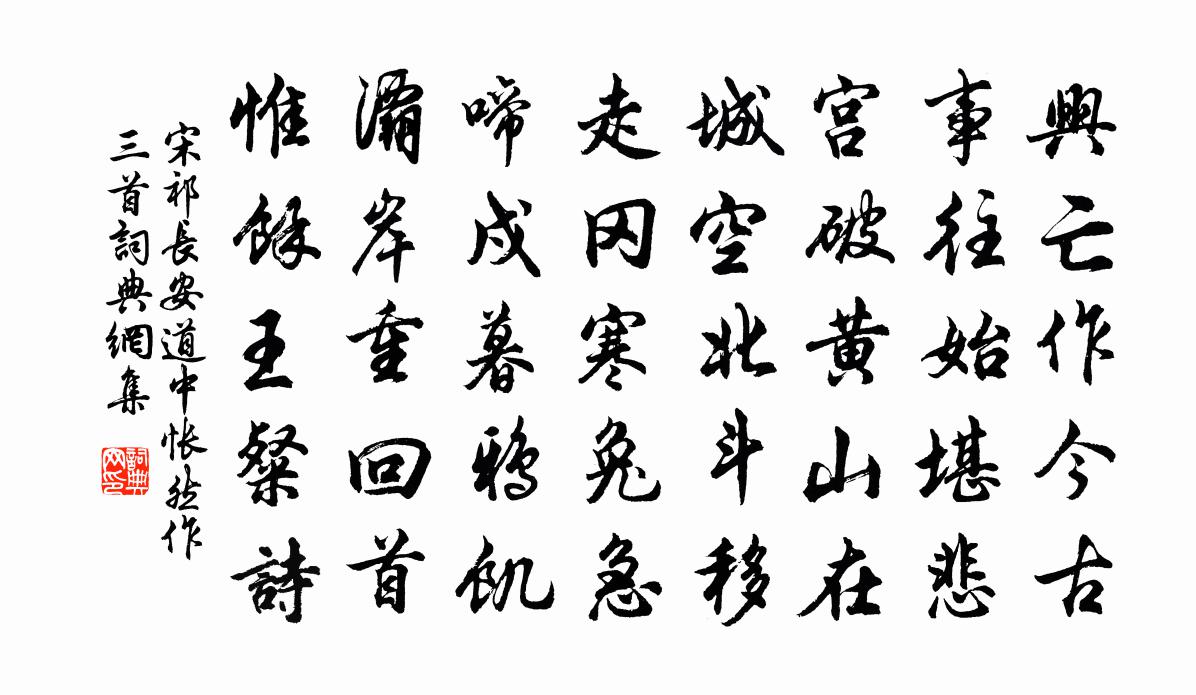 興亡作今古
事往始堪悲
宮破黃山在
城空北斗移
走冈寒兔急
啼戍暮鴉飢
灞岸重回首
惟餘王粲詩
宋祁長安道中悵然作
三首詞典網集
詞典
网印